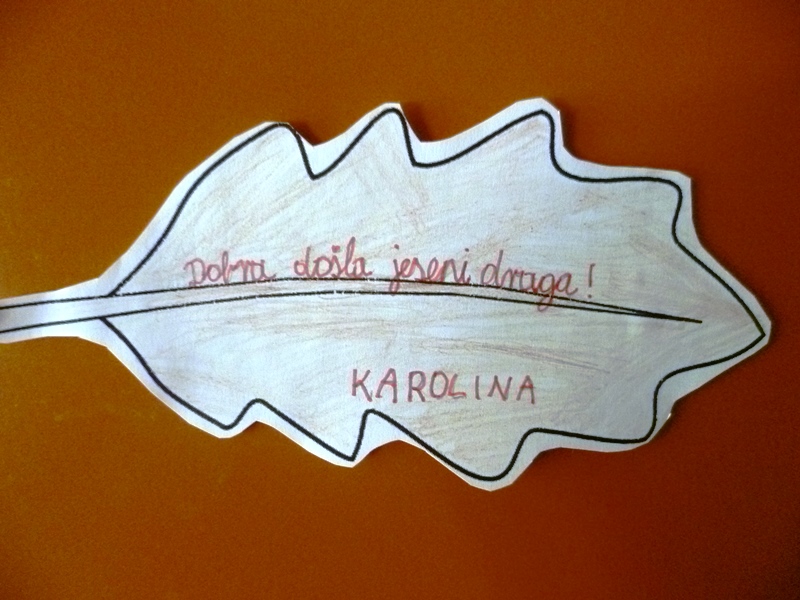 Dobra došla jeseni draga!
KAROLINA